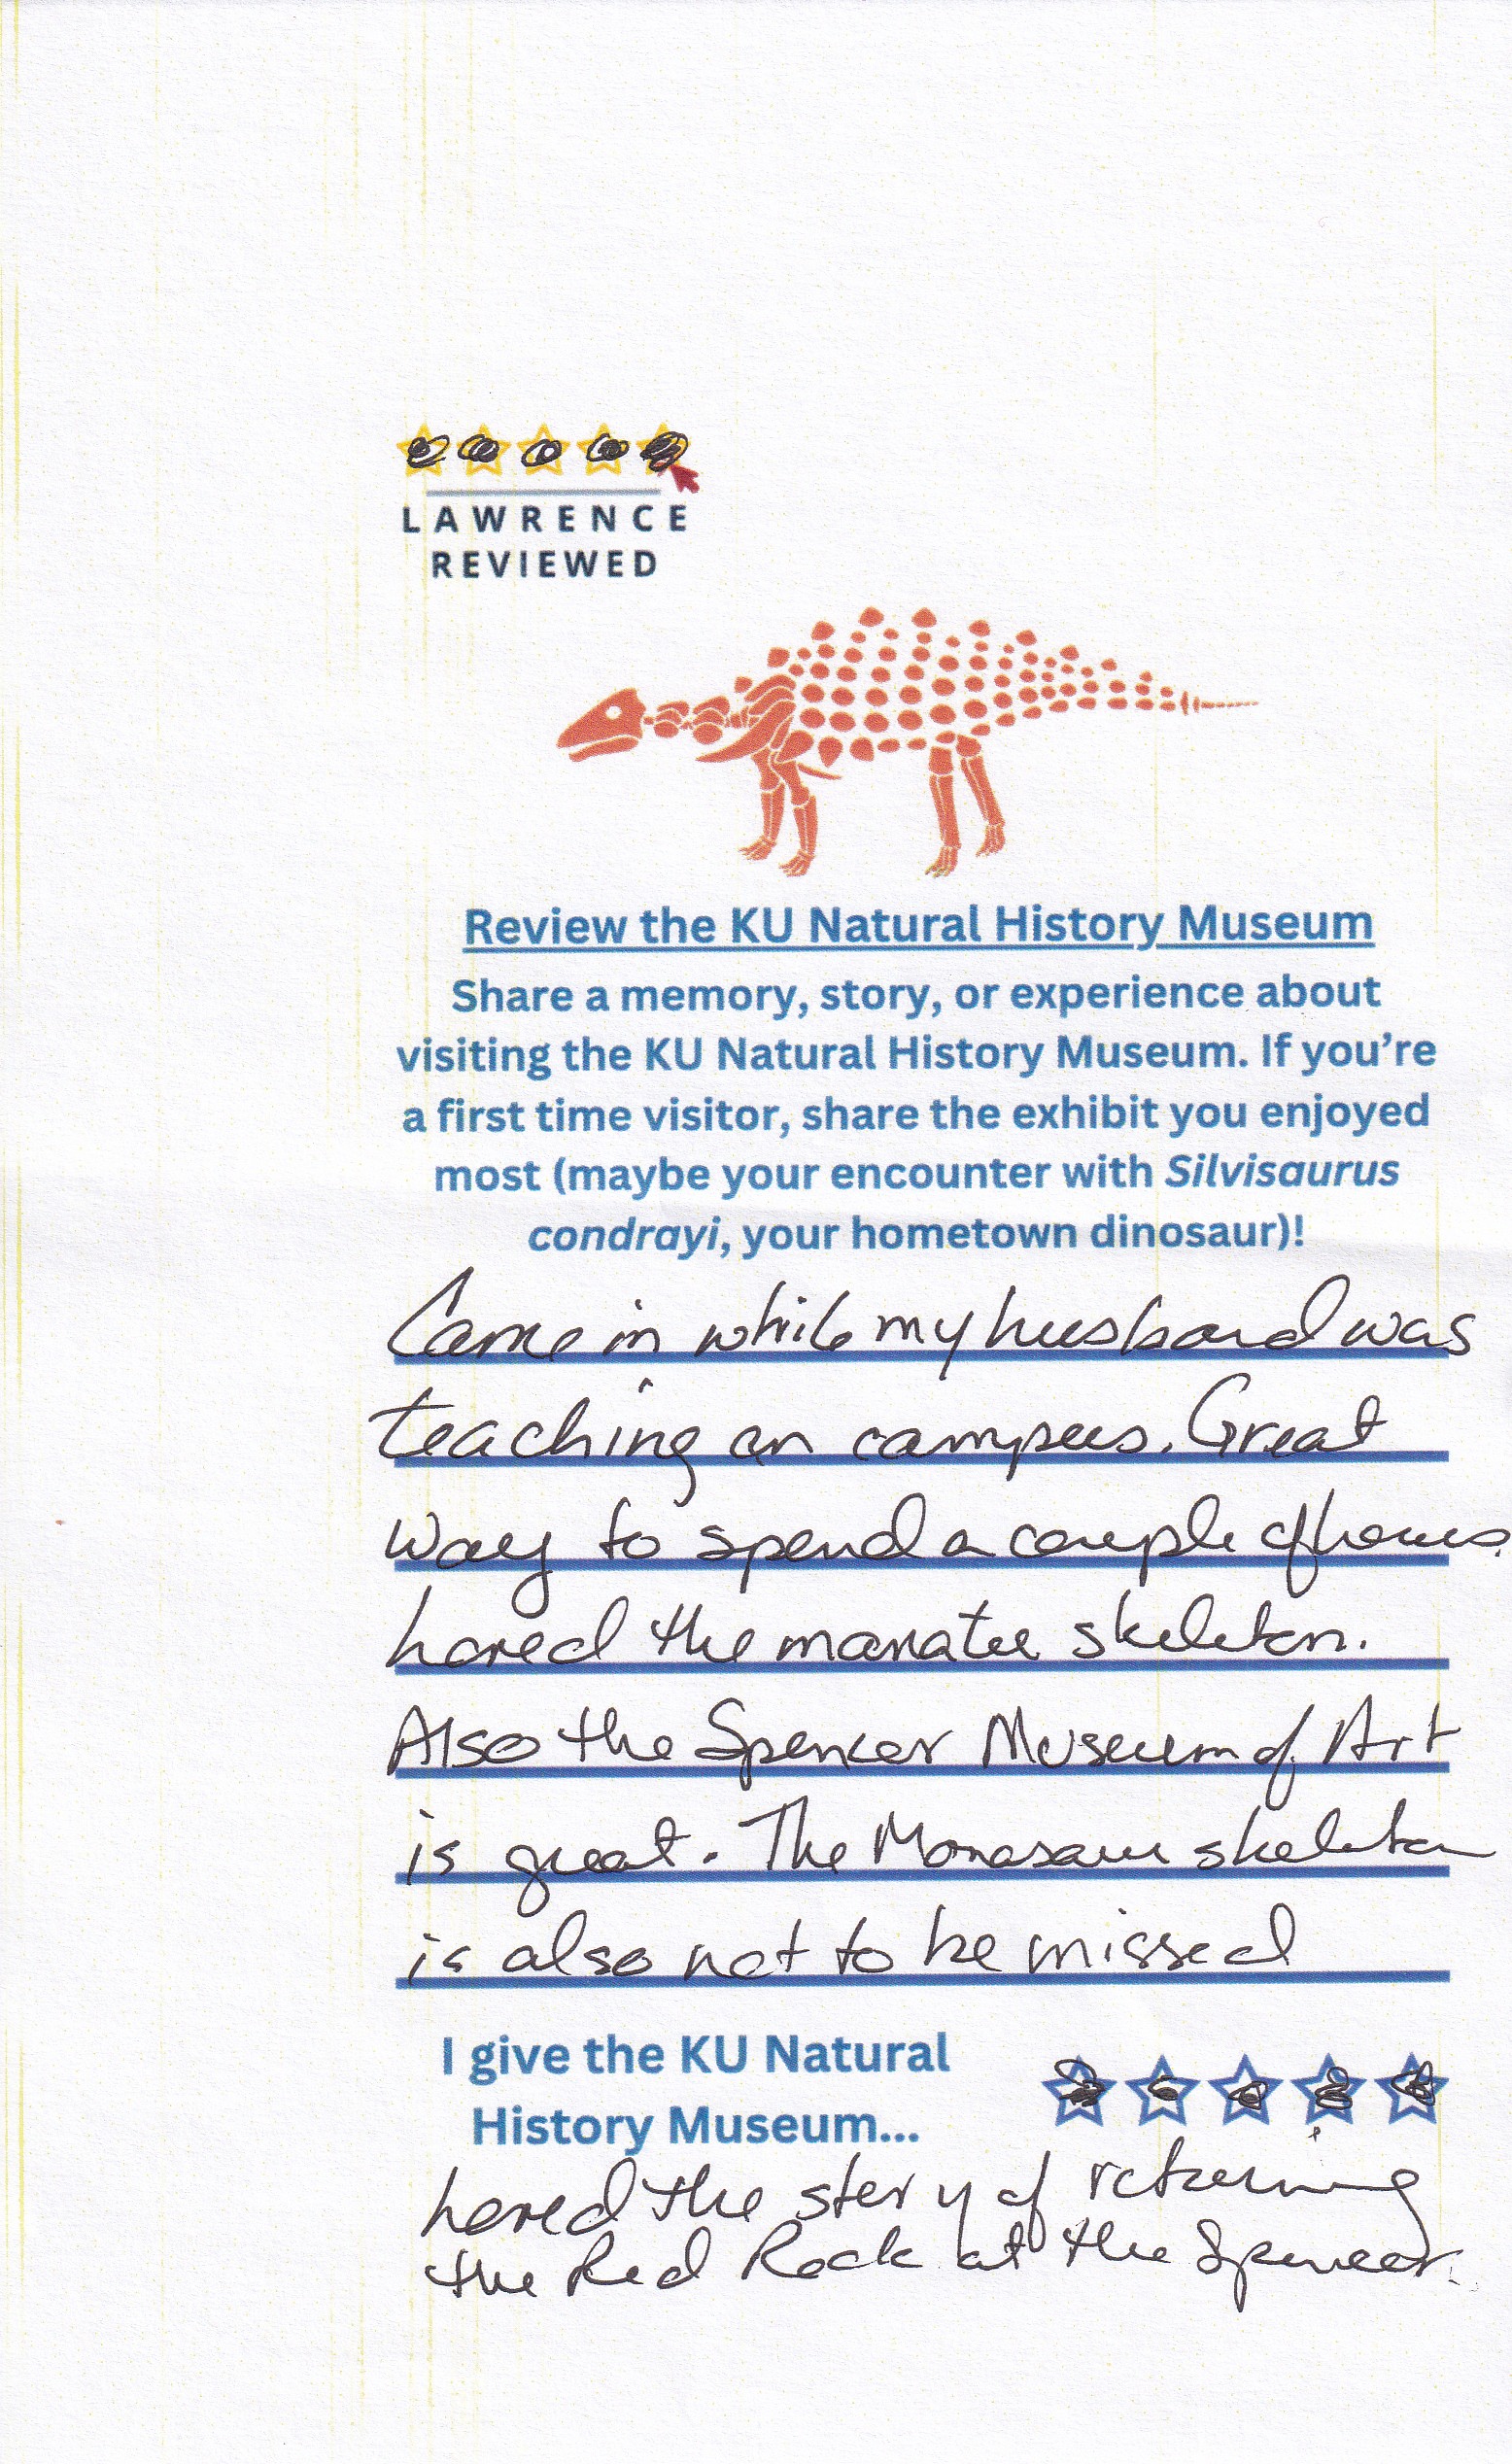 LAWRENCE
REVIEWED
Review the KU Natural History Museum
Share a memory, story, or experience about
visiting the KU Natural History Museum. If you're
a first time visitor, share the exhibit you enjoyed
most (maybe your encounter with Silvisaurus
condrayi, your hometown dinosaur)!
Came in while my husband was
teaching on campus. Great
way to spend a couple of hours.
Loved the manatee skeleton.
Also the Spencer Museum of Art
is great. The Monasaur skeleton
is also not to be missed
I give the KU Natural
History Museum...
Loved the story of returning
the Red Rock at the Spencer.